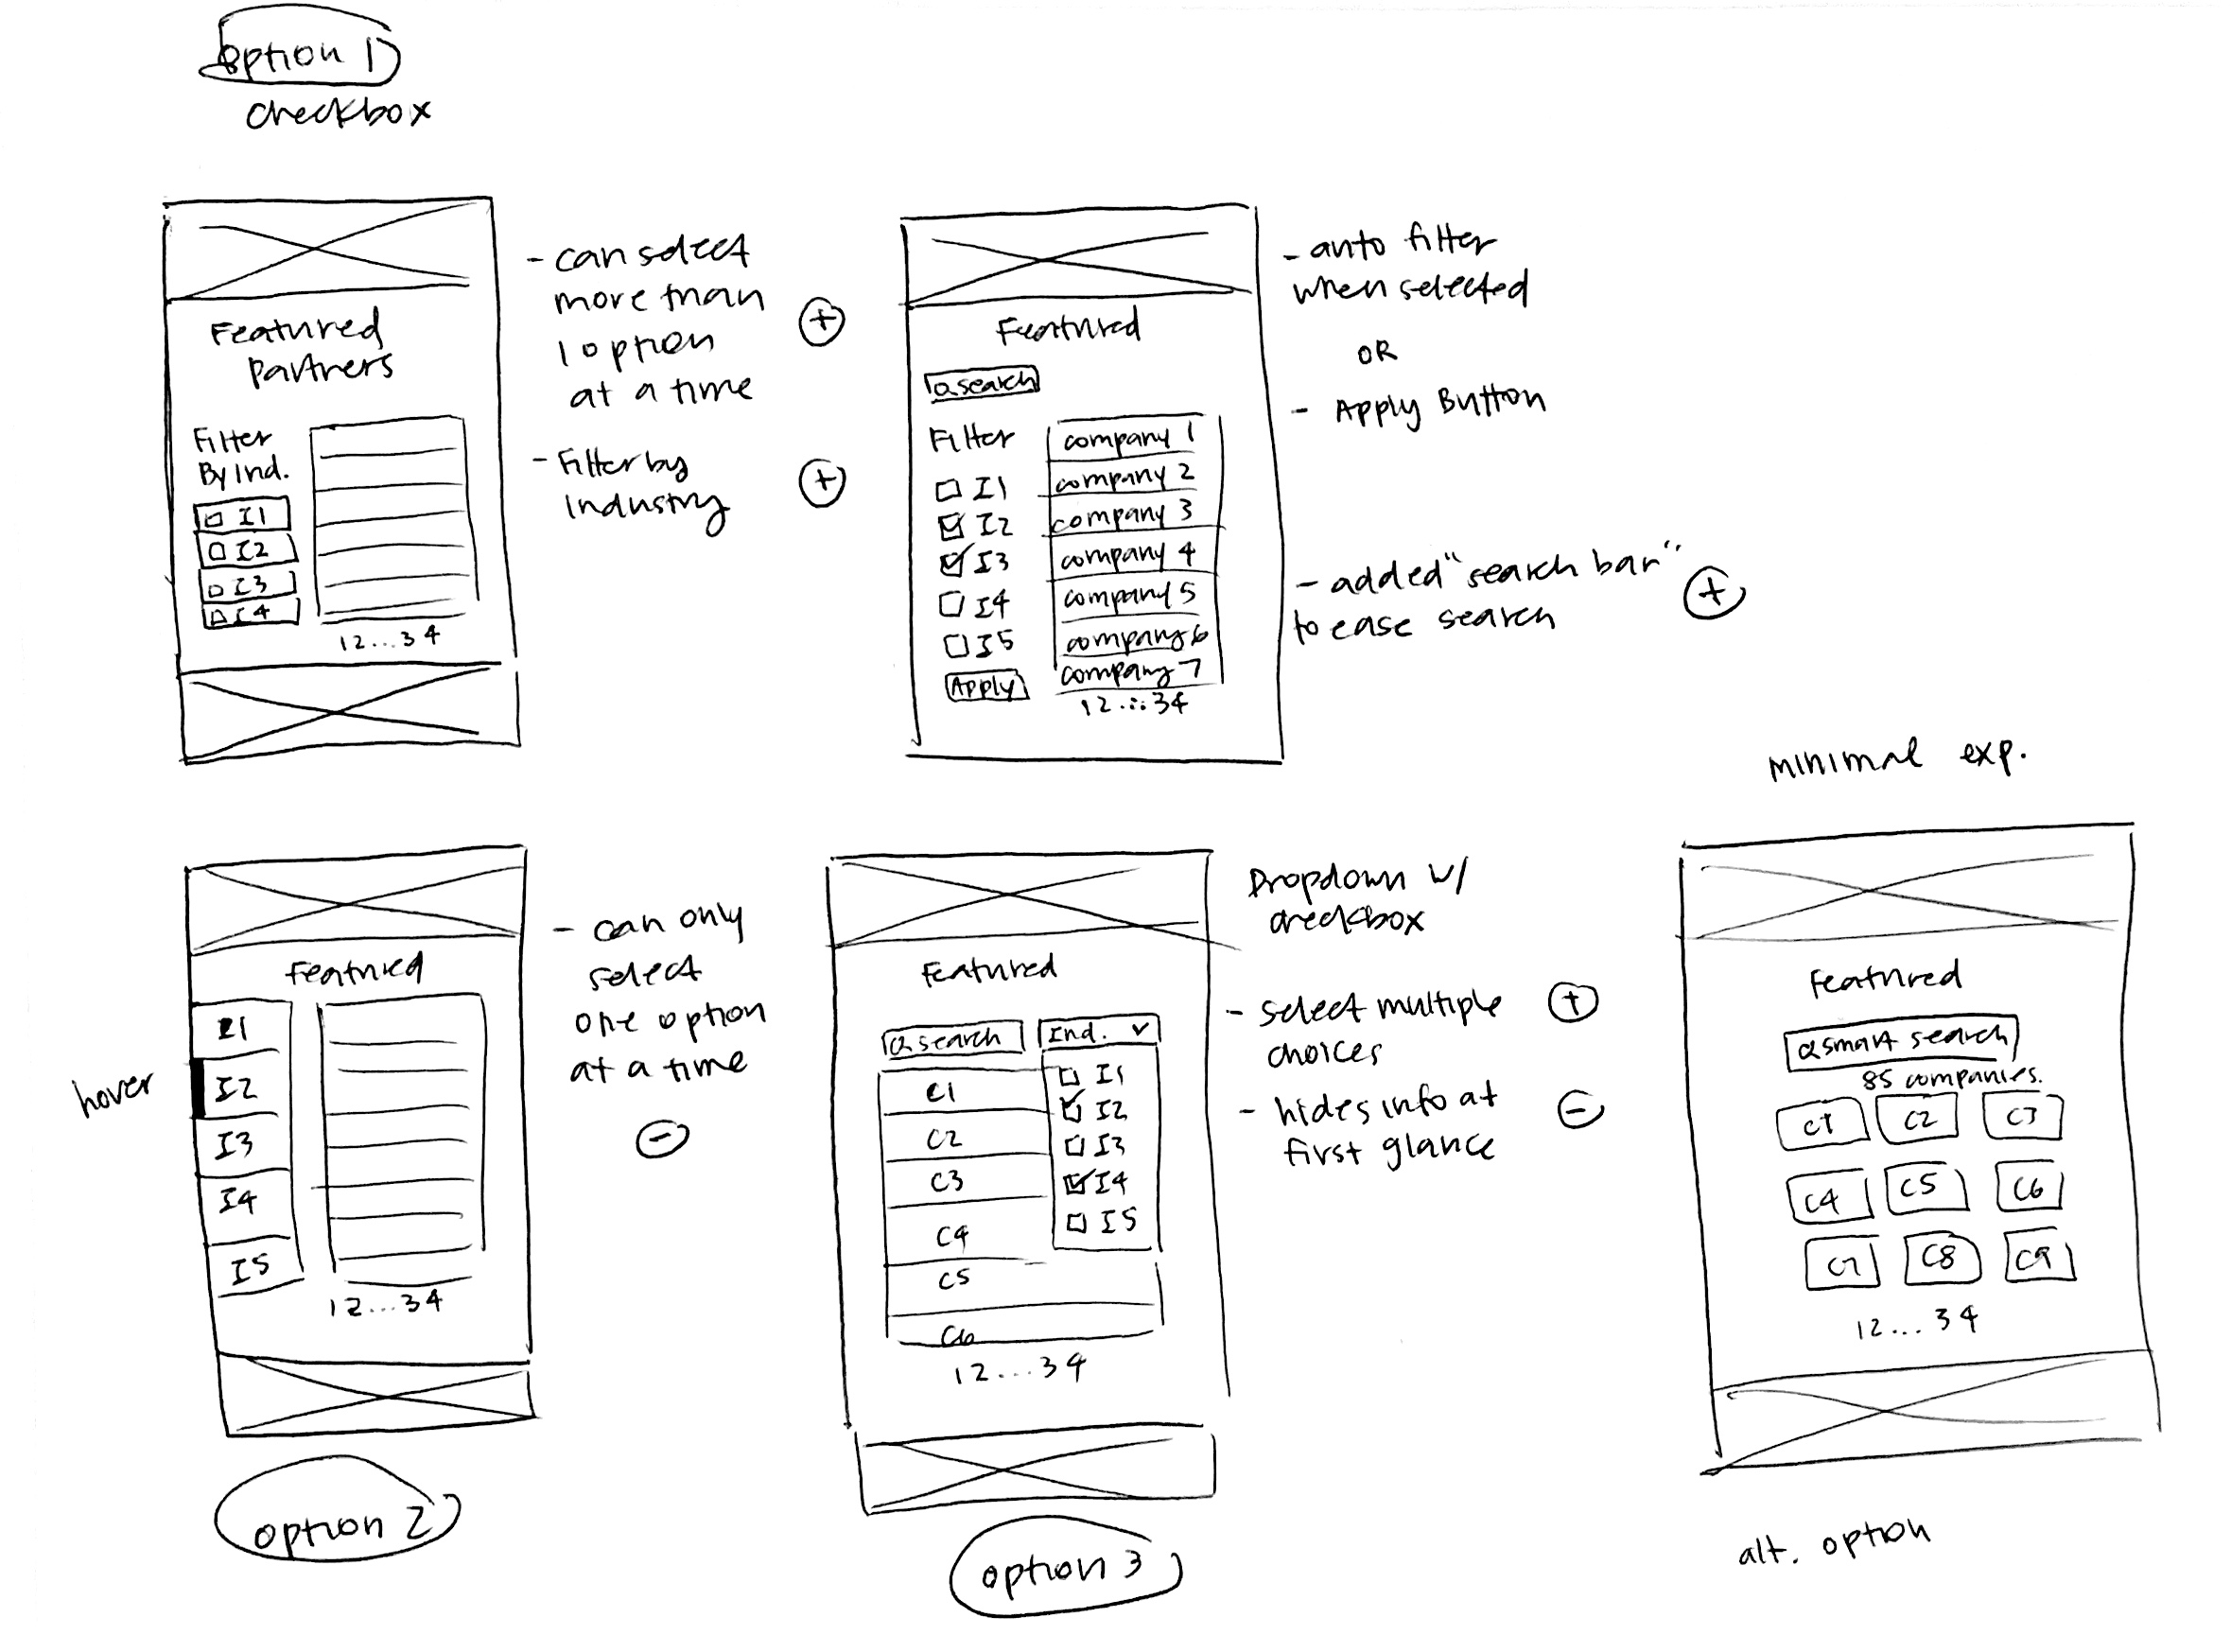 option 1
checkbox
Featured
Partners
Filter
By Ind.
I1
I2
I3
I4
12...34
- can select
more than
1 option
at a time
+
- Filter by
industry
+
Featured
search
Filter
I1
I2
I3
I4
I5
Apply
company 1
company 2
company 3
company 4
company 5
company 6
company 7
12...34
- auto filter
when selected
OR
- Apply Button
- added "search bar"
to ease search
+
hover
Featured
I1
I2
I3
I4
I5
12...34
- can only
select
one option
at a time
-
option 2
Featured
search
Ind.
I1
I2
I3
I4
I5
C1
C2
C3
C4
C5
C6
12...34
Dropdown w/
checkbox
- select multiple
choices
+
- hides info at
first glance
-
option 3
minimal exp.
Featured
smart search
85 companies.
C1 C2 C3
C4 C5 C6
C7 C8 C9
12...34
alt. option